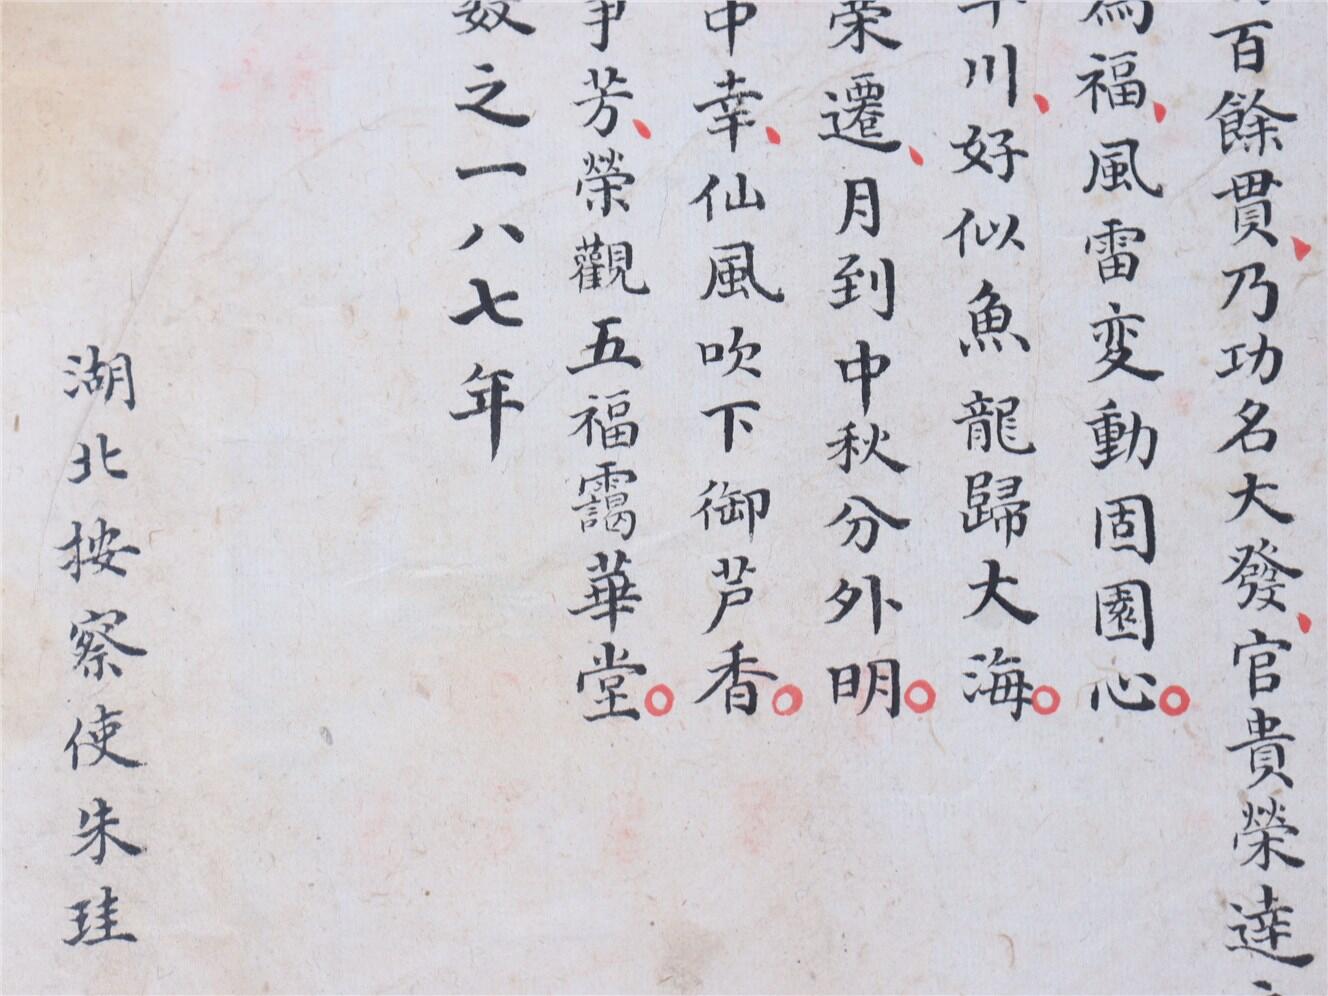 百餘貫乃功名大發官貴榮達
為福風雷変動固園心
川好似魚龍歸大海
荣遷月到中秋分外明
中幸仙風吹下御芦香
爭芳榮觀五福靄華堂
之一八七年
湖北按察使朱珪